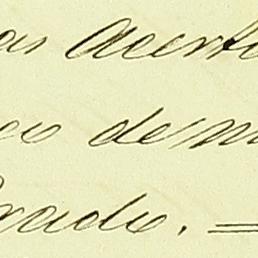 as acerto
co de m
Prado. =